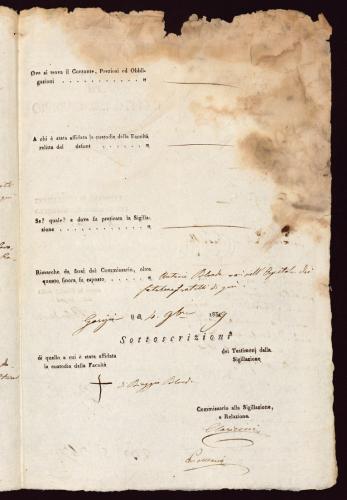 Ove si trova il Contante, Preziosi ed Obbli-
gazioni . . . . . . . . . . . . „
A chi è stata affidata la custodia della Facoltà
relitta dal defont . . . . . . . . „
Se? quale? e dove fu praticata la Sigilla-
zione . . . . . . . . . . . . . „
Rimarche da farsi dal Commissario, oltre
quanto finora fu esposto . . . . . . „
nell' Ospitale dei
fatebenefratelli di qui.
4. 9bre 1839
Sottoscrizioni
di quello a cui è stata affidata
la custodia della Facoltà
dei Testimonj della
Sigillazione
Commissario alla Sigillazione,
e Relazione.